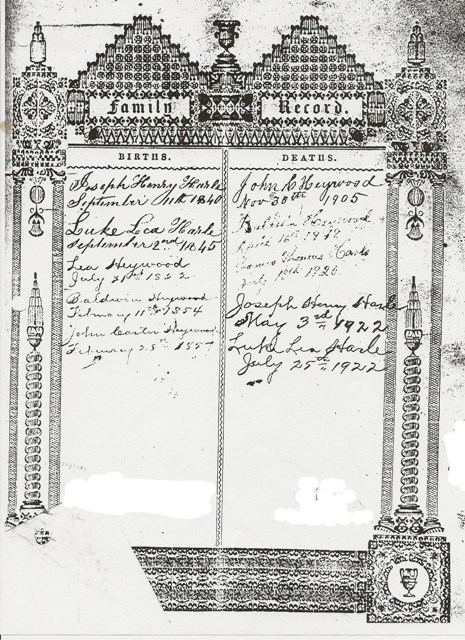 Family Record.
BIRTHS.
Joseph Henry Harle
September 1840
Luke Lea Harle
September 2nd 1845
Lea Heywood
July 31st 1852
Baldwin Heywood
February 11th 1854
John Carter Heywood
February 25th 1857
DEATHS.
John C Heywood
Nov 30th 1905
Heywood
April
Thomas Harle
July 19th 1920.
Joseph Henry Harle
May 3rd 1922
Luke Lea Harle
July 25th 1922